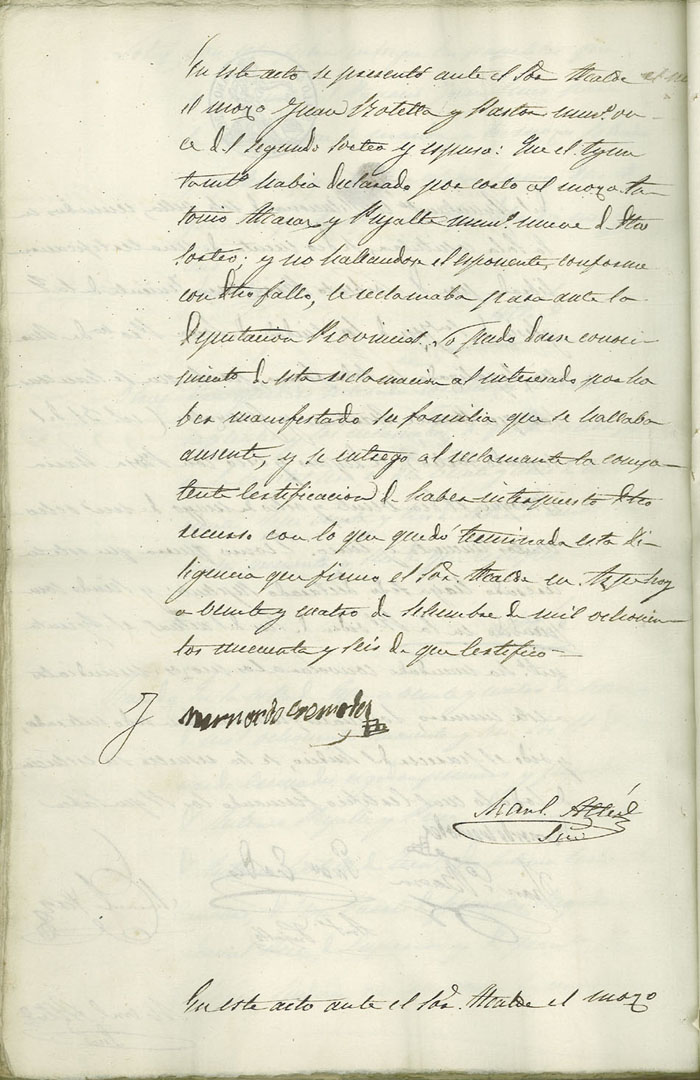 En este acto se presentó ante el Sor. Alcalde
el mozo Juan Botella y Pastor num.º on-
ce del segundo sorteo y espuso: Que el Ayun
tamtº. habia declarado por corto al mozo An
tonio Alcaraz y num.º nueve de dho
sorteo; y no hallandose el esponente conforme
con dho fallo, le reclamaba para ante la
Diputacion Provincial, No pudo darse conoci-
miento de esta reclamacion al interesado por ha
ber manifestado su familia que se hallaba
ausente, y se entregó al reclamante la compe
tente certificacion de haber interpuesto dho
recurso con lo que quedó terminada esta di-
ligencia que firmó el Sor. Alcalde en Aspe hoy
a veinte y cuatro de setiembre de mil ochocien
tos cincuenta y seis de que certifico
Bernardo Cremades
Manl.
Srio
En este acto ante el Sor. Alcalde el mozo